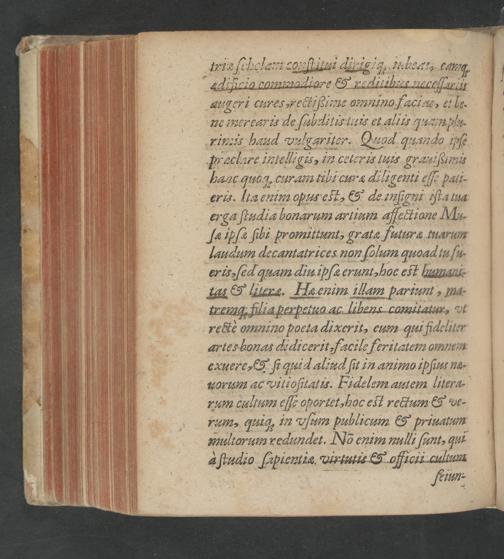 triæ scholam constitui dirigiq́; iubeas, eamq́;
ædificio commodiore & reditibus necessariis
augeri cures, rectißime omnino facias, et be-
ne merearis de subditis tuis et aliis quam plu-
rimis haud vulgariter. Quod quando ipse
præclare intelligis, in ceteris tuis grauißimis
hanc quoq́; curam tibi curæ diligenti esse pati-
eris. Ita enim opus est, & de insigni ista tua
erga studia bonarum artium affectione Mu-
sæ ipsæ sibi promittunt, gratæ futuræ tuarum
laudum decantatrices non solum quoad tu fu-
eris, sed quam diu ipsæ erunt, hoc est humani-
tas & literæ. Hæ enim illam pariunt, ma-
tremq́; filia perpetuo ac libens comitatur, vt
rectè omnino poeta dixerit, eum qui fideliter
artes bonas didicerit, facile feritatem omnem
exuere, & si quid aliud sit in animo ipsius næ-
uorum ac vitiositatis. Fidelem autem litera-
rum cultum esse oportet, hoc est rectum & ve-
rum, quiq́; in vsum publicum & priuatum
multorum redundet. Nō enim nulli sunt, qui
à studio sapientiæ virtutis & officii cultum
seiun-